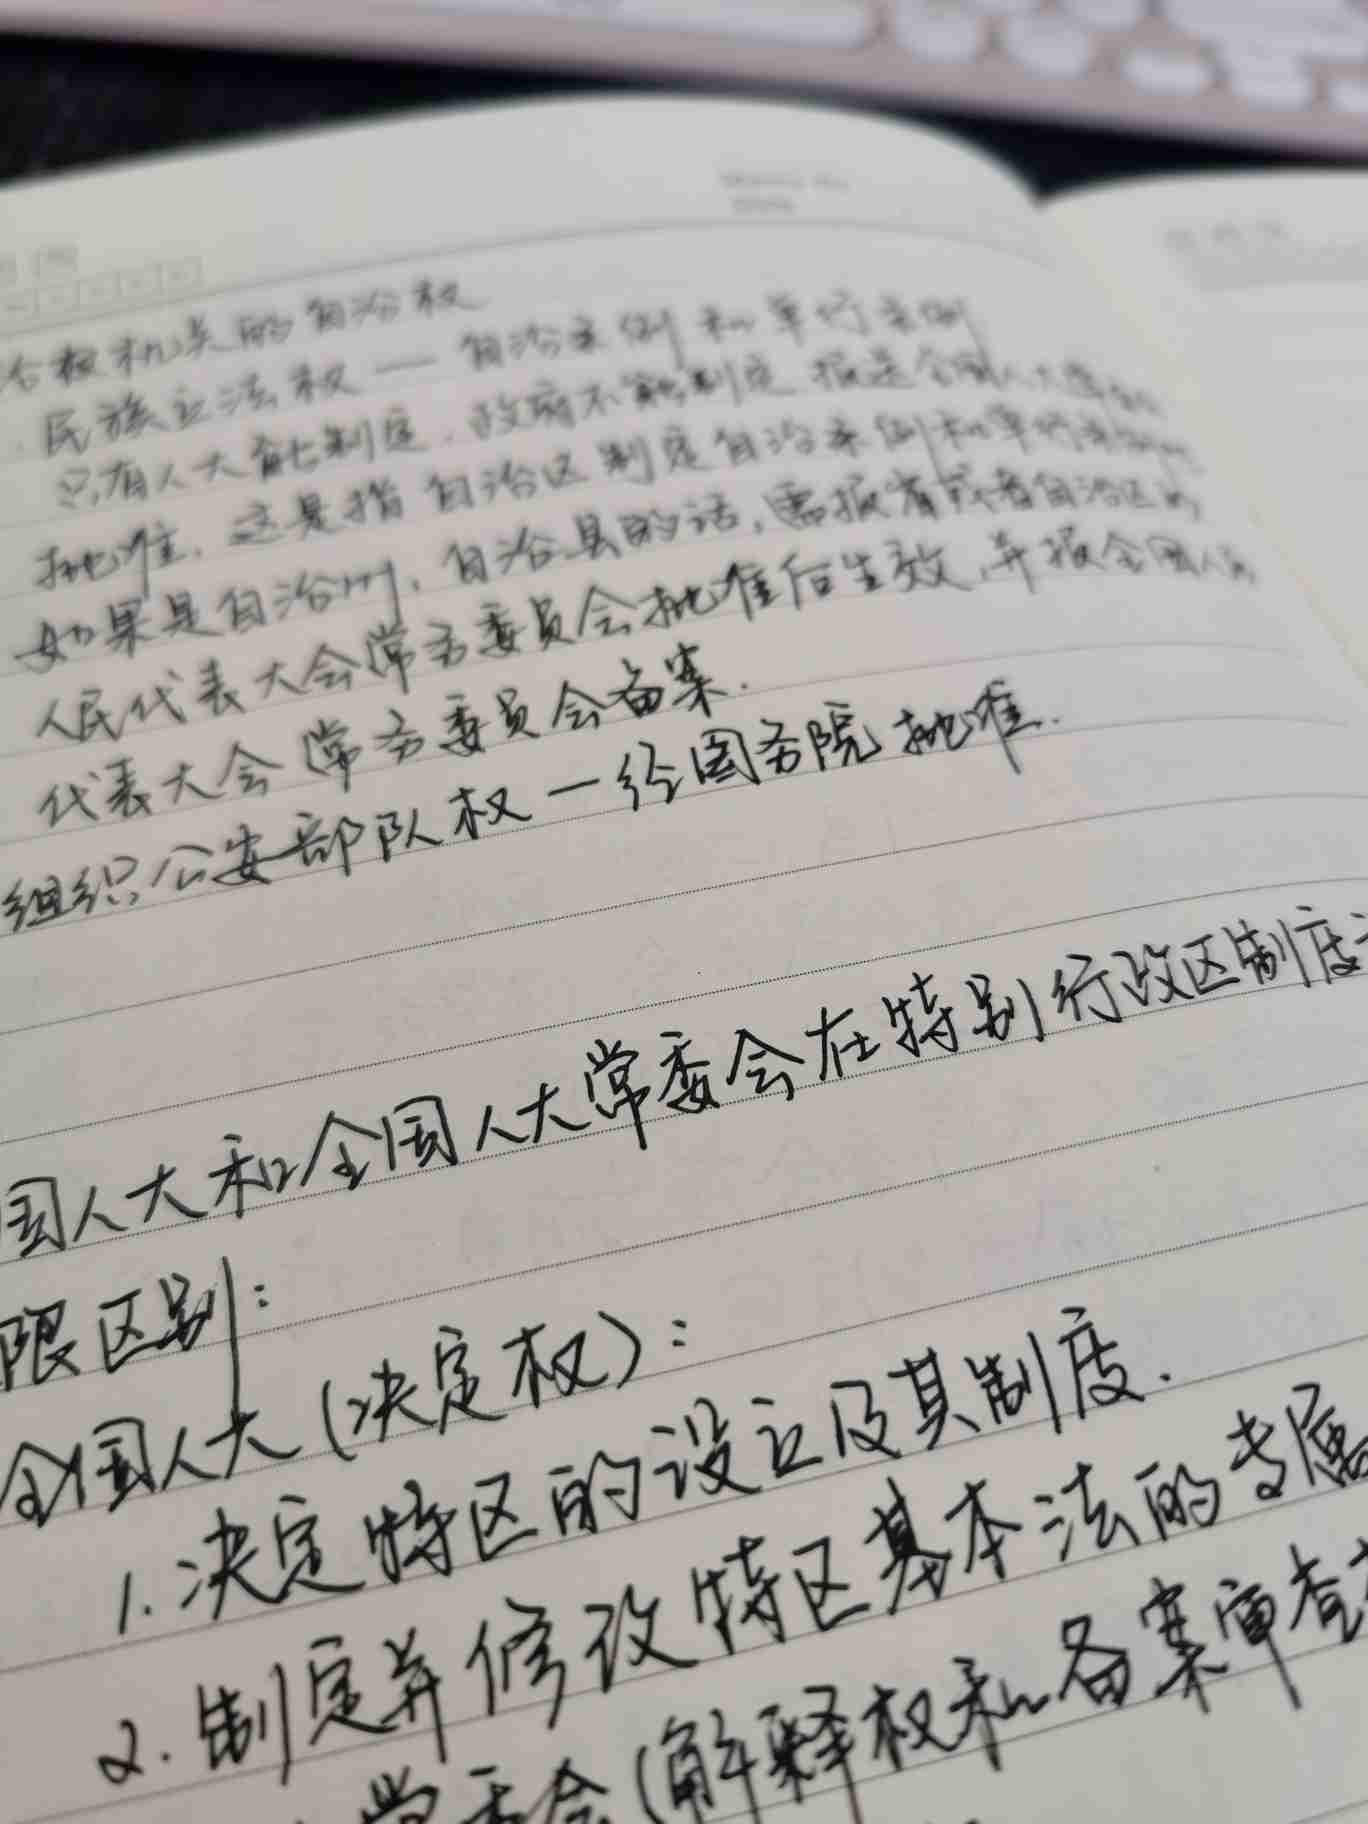 治权机关的自治权
民族立法权—自治条例和单行条例
只有人大能制定.政府不能制定 报送全国人大常
批准.这是指自治区制定自治条例和单行条例
如果是自治州、自治县的话,需报省或者自治区的
人民代表大会常务委员会批准后生效,并报全国人民
代表大会常务委员会备案.
组织公安部队权—经国务院批准.
国人大和全国人大常委会在特别行政区制度
限区别:
全国人大(决定权):
1.决定特区的设立及其制度.
2.制定并修改特区基本法的专属
常委会(解释权和备案审查